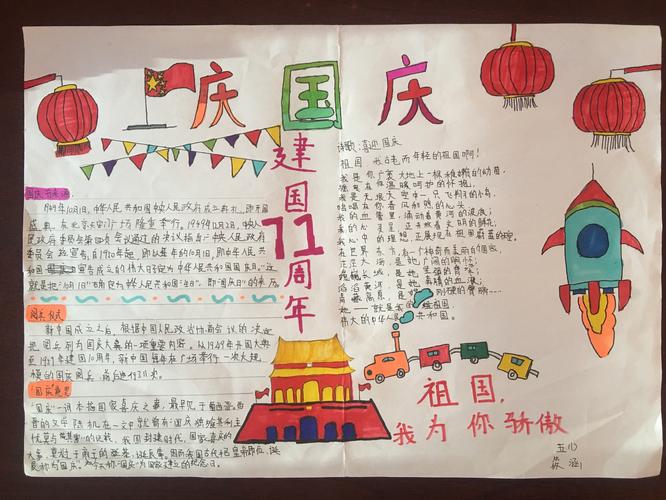 庆国庆
建国71周年
诗歌:喜迎国庆
祖国 我古老而年轻的祖国啊!
我是你广袤大地上一棵稚嫩的幼苗,
你温暖呵护的怀抱,
我是你无垠天空中一只飞翔的小鸟,
我的血管里,涌动着黄河的波涛;
我心中的理想,正展现在
在世界东方,有一个神奇而美丽的国家,
茫茫大海,是她广阔的胸怀;
巍巍长城,是她坚强的脊梁;
滔滔黄河,是她奔腾的血液;
青藏高原,是她刚硬的臂膀……
她——就是我的祖国
伟大的中华人民共和国。
国庆节来源
1949年10月1日,中华人民共和国中央人民政府成立典礼,即开国
盛典,在北京天安门广场隆重举行。1949年12月2日,中央人
民政府委员会第四次会议通过的决议指出:中央人民政府
委员会宣告自1950年起,即以每年的10月1日,即中华人民共
和国宣告成立的伟大日子定为中华人民共和国国庆日。"这
就是把"10月1日"确定为中华人民共和国"生日",即"国庆日"的来历。
阅兵仪式
新中国成立之后,根据中国人民政治协商会议的决定
把阅兵列为国庆大典的一项重要内容。从1949年开国大典
至1959年建国10周年,新中国每年在广场举行一次大规
模的国庆阅兵,前后进行11次。
"国庆"意思
"国庆"一词本指国家喜庆之事,最早见于西晋。西
晋的文学家陆机在一文中就有"国庆独飨其利主
忧莫与其害"的记载,我国封建时代、国家喜庆的
大事,莫过于帝王的登基、诞辰等。因而我国古代把皇帝即位、诞
辰称为"国庆"。如今天称"国庆"为国家建立的纪念日。
祖国,
我为你骄傲